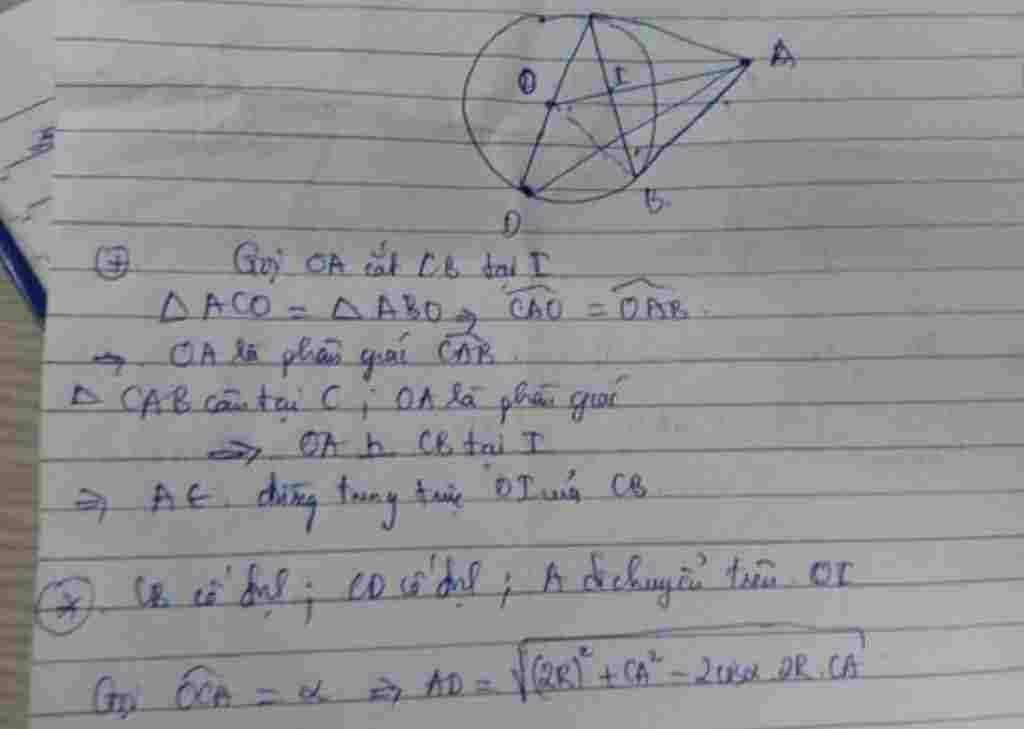 A
O
I
B
D
Gọi OA cắt CB tại I
△ ACO = △ ABO ⇒ CAO = OAB.
⇒ OA là phân giác CAB.
△ CAB cân tại C ; OA là phân giác
⇒ OA ⊥ CB tại I
⇒ A ∈ đường trung trực OI của CB
CB cố định ; CD cố định ; A di chuyển trên OI
Gọi OCA = α ⇒ AD = √((2R)² + CA² - 2cosα 2R.CA)